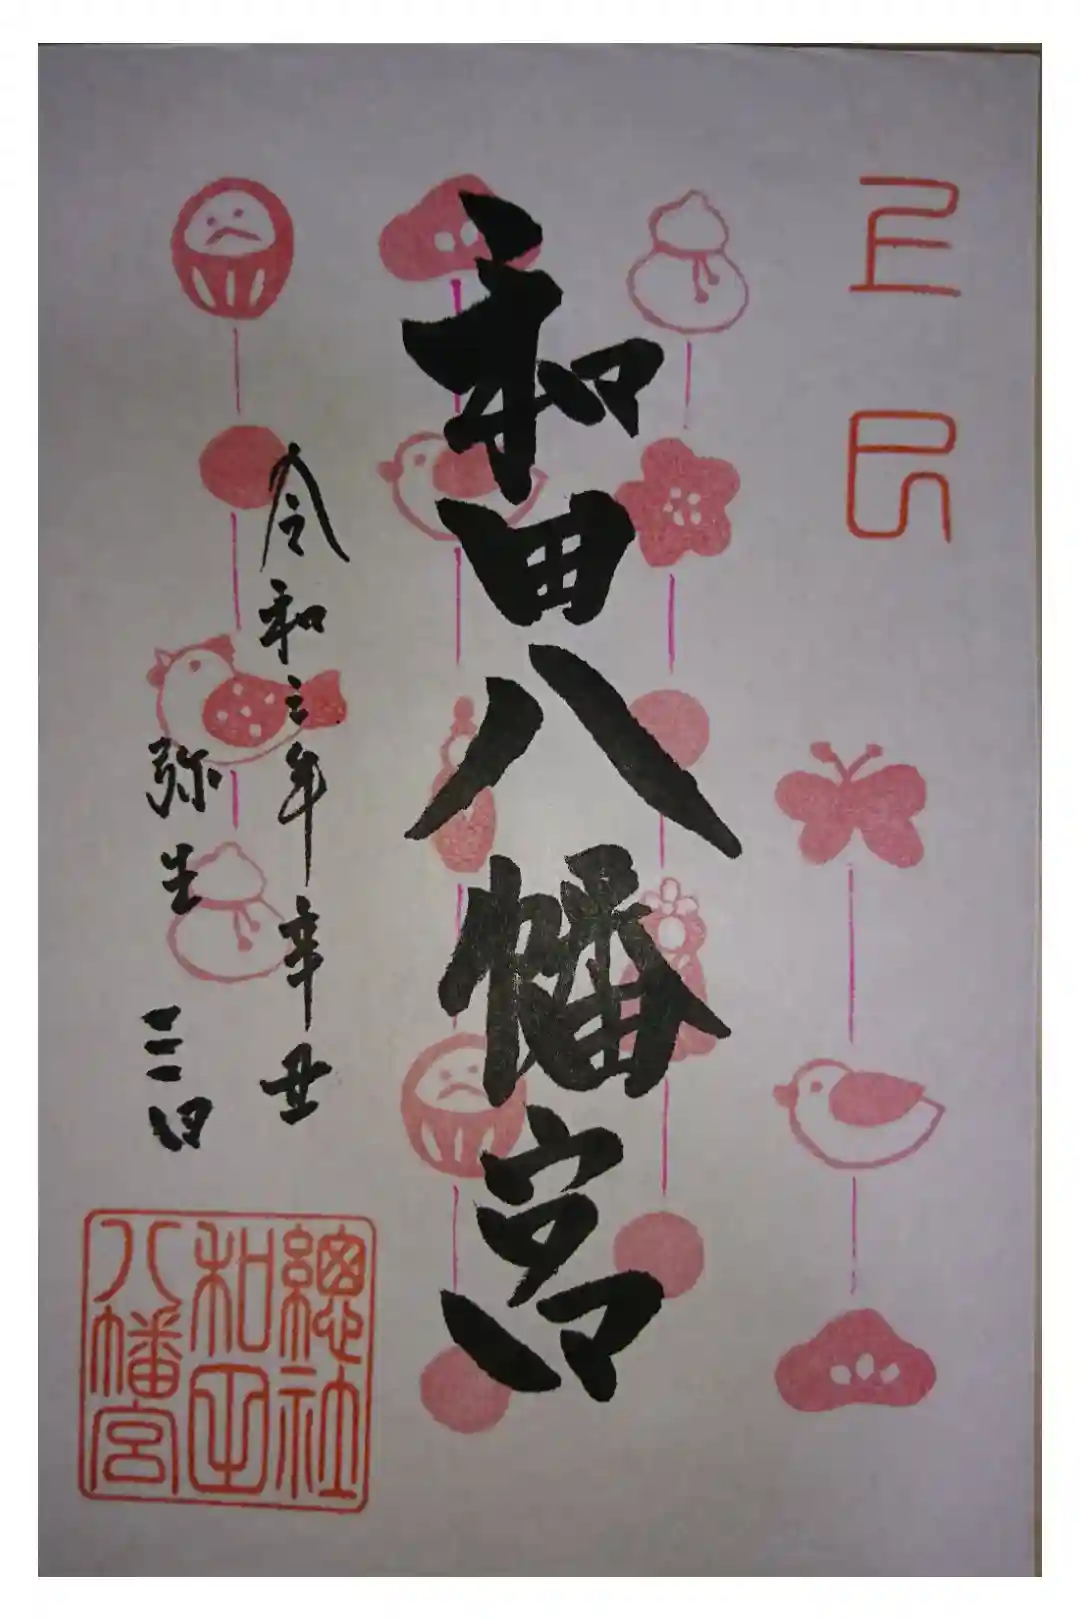 上巳
和田八幡宮
令和三年辛丑
弥生
三日
總社
和田
八幡宮